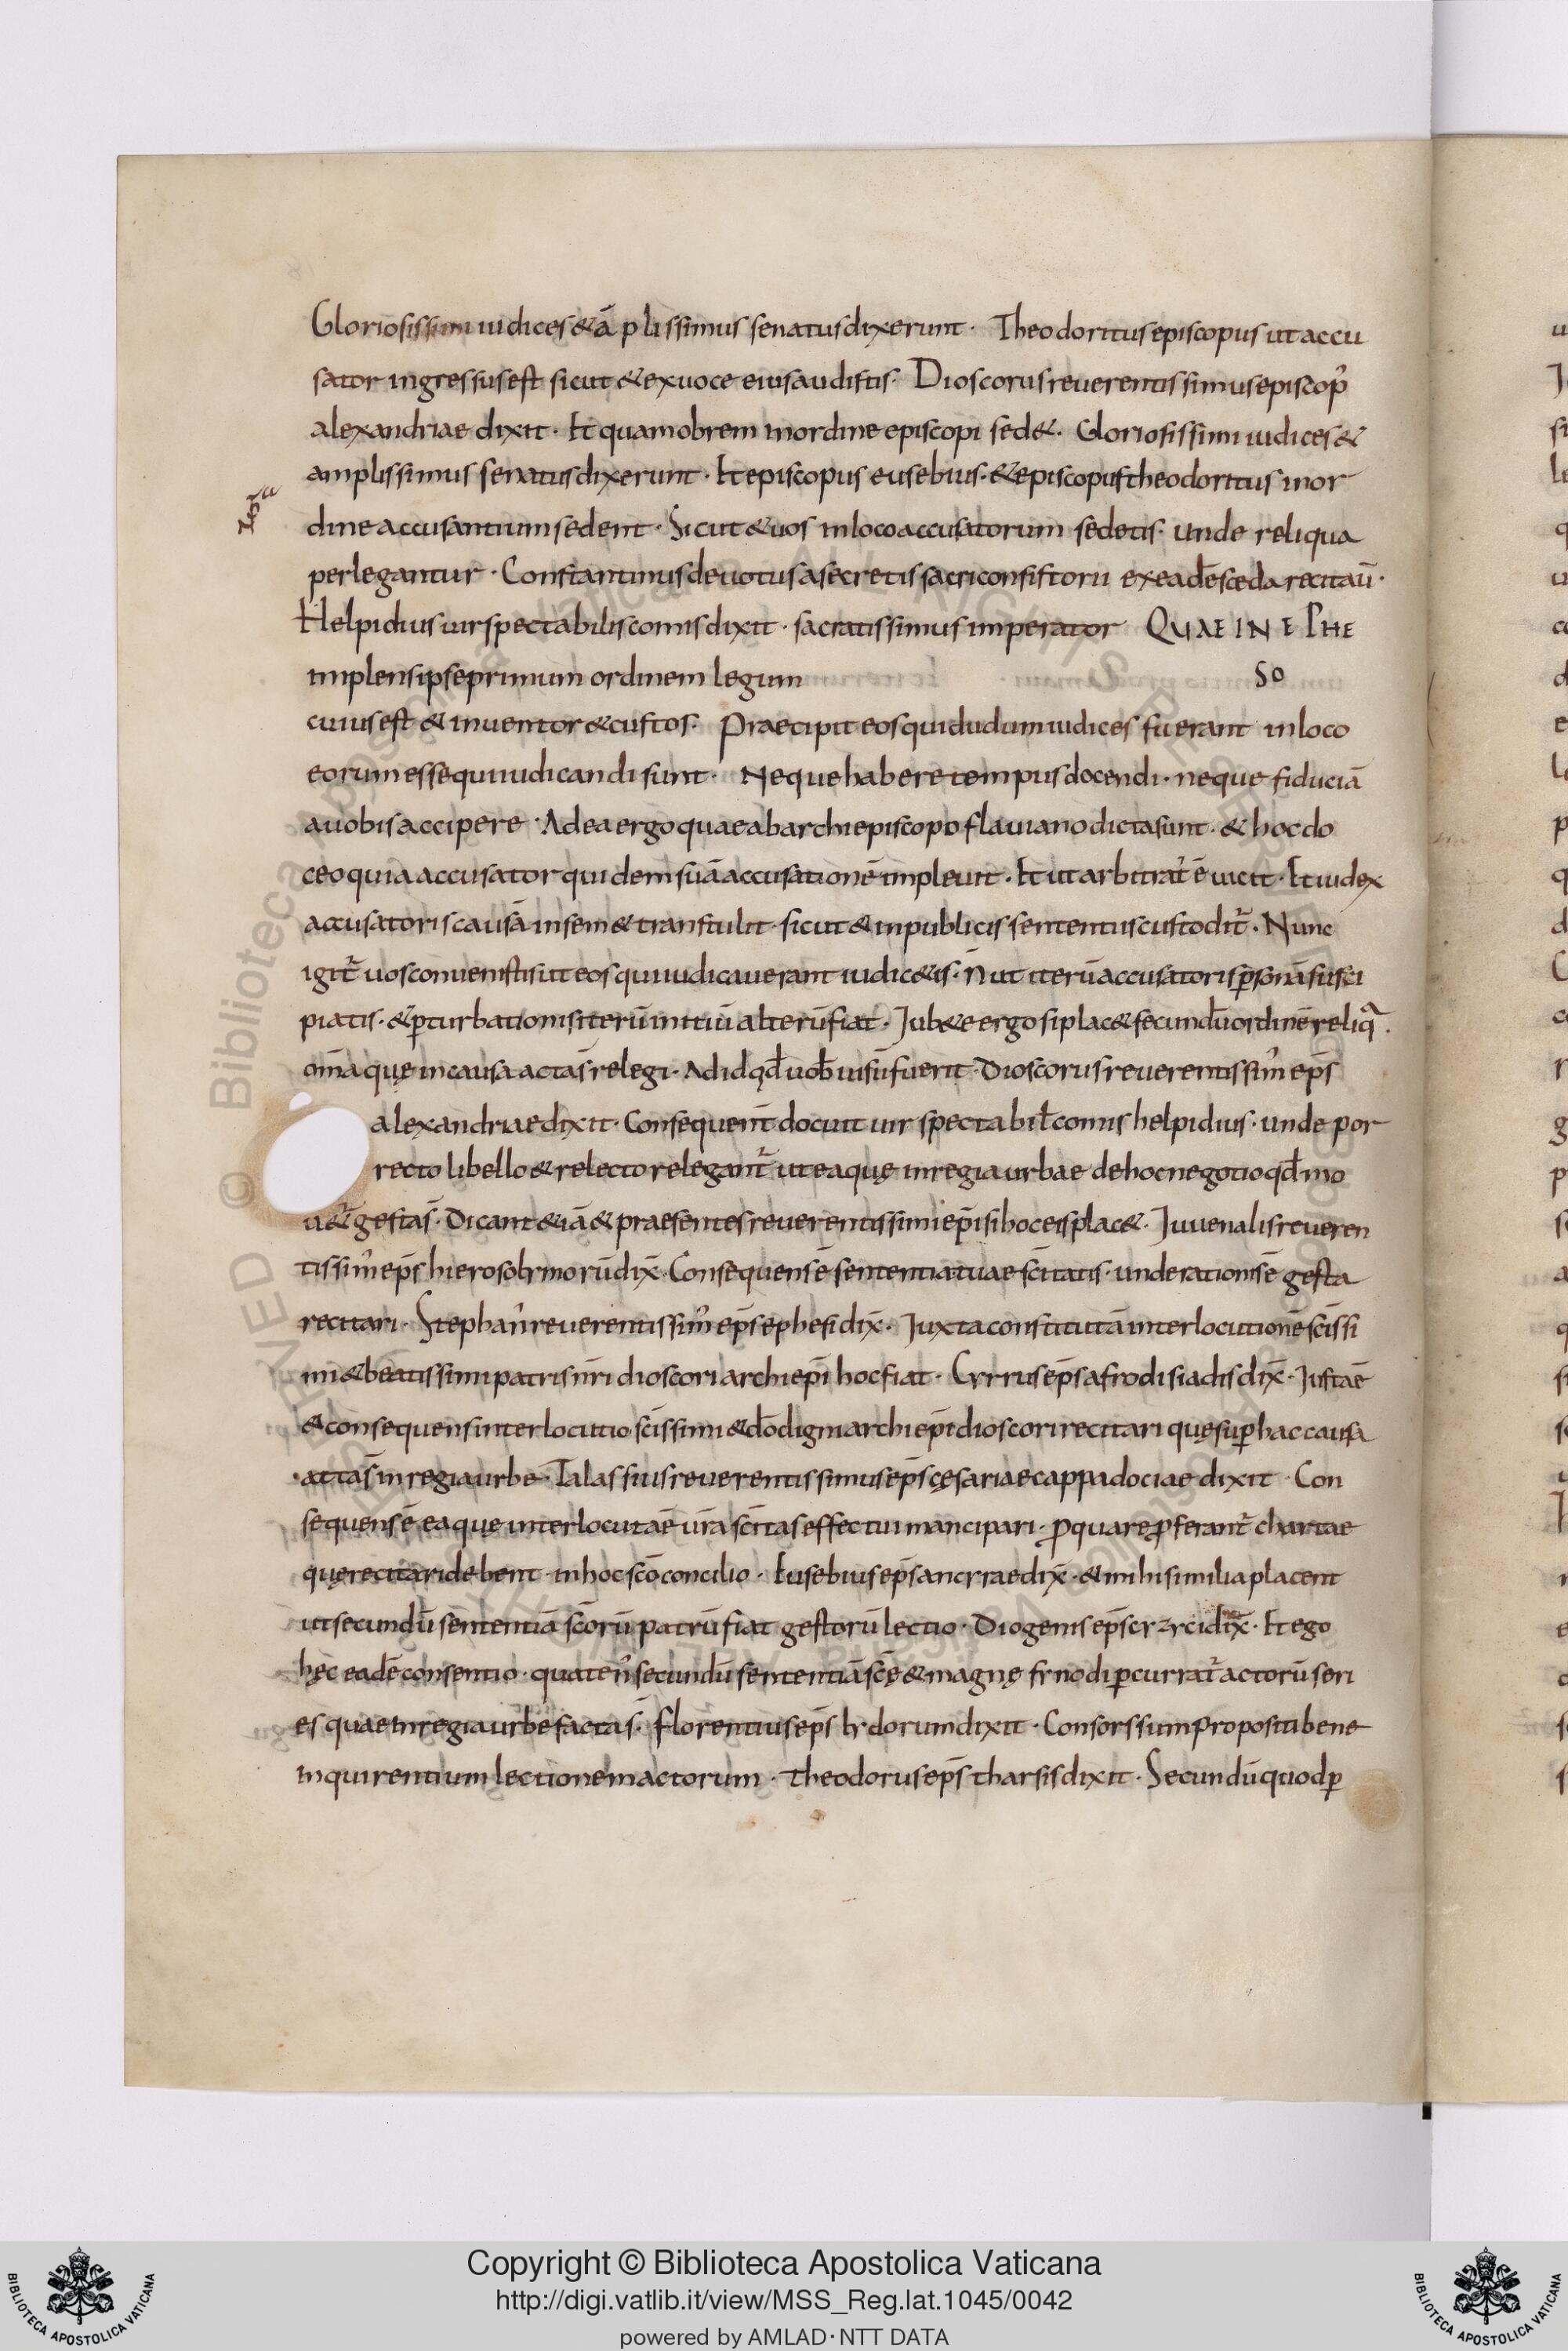 Gloriosissimi iudices &ā plissimus senatus dixerunt · Theodoritus episcopus ut accu
sator ingressus est sicut & ex uoce eius audistis · Dioscorus reuerentissimus episcop᾽
alexandriae dixit · Et quamobrem in ordine episcopi sed& · Gloriosissimi iudices &
amplissimus senatus dixerunt · Et episcopus eusebius · & episcopus theodoritus in or
dine accusantium sedent · Sicut & uos in loco accusatorum sedetis · unde reliqua
perlegantur · Constantinus deuotus a secretis sacri consistorii ex eadē sceda recitaū ·
Helpidius uir spectabilis comis dixit · sacratissimus imperator QUAE IN EPHE
implens ipse primum ordinem legum SO
cuius est & inuentor & custos · Praecipit eos qui dudum iudices fuerant in loco
eorum esse qui iudicandi sunt · Neque habere tempus docendi · neque fiduciā
a uobis accipere · Ad ea ergo quae ab archiepiscopo flauiano dicta sunt · & hoc do
ceo quia accusator quidem suā accusationē impleuit · Et ut arbitrat᾽ ē uicit · Et iudex
accusatoris causā in sem& transtulit · sicut & in publicis sententiis custodit᾽ · Nunc
igit᾽ uos conuenistis ut eos qui iudicauerant iudic&is · n̄ ut iterū accusatoris p̱sonā susci
piatis · & p̱turbationis iterū initiū alterū fiat · Iub&e ergo si plac& secundū ordinē reliqᵃ ·
om̄a quę in causa acta s̄ relegi · Ad id qđ uoƀ uisū fuerit · Dioscorus reuerentissim᾽ ep̄s
alexandriae dixit · Consequent̄ docuit uir spectabiƚ comis helpidius · unde por
recto libello & relecto relegant᾽ ut ea quę in regia urbae de hoc negotio qđ mo
u&᾽ gesta s̄ · Dicant &iā & praesentes reuerentissimi ep̄i si hoc eis plac& · Iuuenalis reueren
tissim᾽ ep̄s hierosolymorū dix̄ · Consequens ē sententia tuae sc̄itatis · unde rationis ē gesta
recitari · Stephan᾽ reuerentissim᾽ ep̄s ephesi dix̄ · Iuxta constitutā interlocutionē sc̄issi
mi & beatissimi patris nr̄i dioscori archiep̄i hoc fiat · Cyrrus ep̄s afrodisiadis dix̄ · Iusta ē
& consequens interlocutio sc̄issimi & dō digni archiep̄i dioscori recitari quę sup̱ hac causa
acta s̄ in regia urbe · Talassius reuerentissimus ep̄s cęsariae cappadociae dixit · Con
sequens ē ea quę interlocuta ē ur̄a sc̄itas effectui mancipari · p̱qua re p̱ferant᾽ chartae
quę recitari debent in hoc sc̄o concilio · Eusebius ep̄s ancyrae dix̄ · & mihi similia placent
ut secundū sententiā sc̄orū patrū fiat gestorū lectio · Diogenis ep̄s cyzyci dix̄ · Et ego
hęc eadē consentio · quaten᾽ secundū sententiā sc̄ę & magnę synodi p̱currat᾽ actorū seri
es quae in regia urbe facta s̄ · Florentius ep̄s lydorum dixit · Consors sum propositi bene
inquirentium lectionem actorum · Theodorus ep̄s tharsis dixit · Secundū quod p̱
Copyright © Biblioteca Apostolica Vaticana
http://digi.vatlib.it/view/MSS_Reg.lat.1045/0042
powered by AMLAD · NTT DATA
BIBLIOTECA APOSTOLICA VATICANA
BIBLIOTECA APOSTOLICA VATICANA